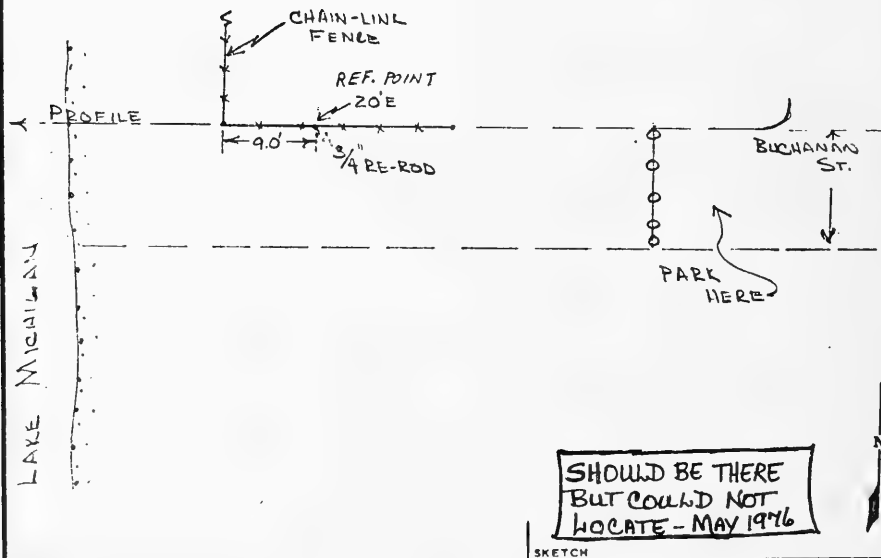 CHAIN-LINK
FENCE
REF. POINT
20'E
PROFILE
9.0'
3/4" RE-ROD
BUCHANAN
ST.
PARK
HERE
LAKE MICHIGAN
N
SHOULD BE THERE
BUT COULD NOT
LOCATE - MAY 1976
SKETCH